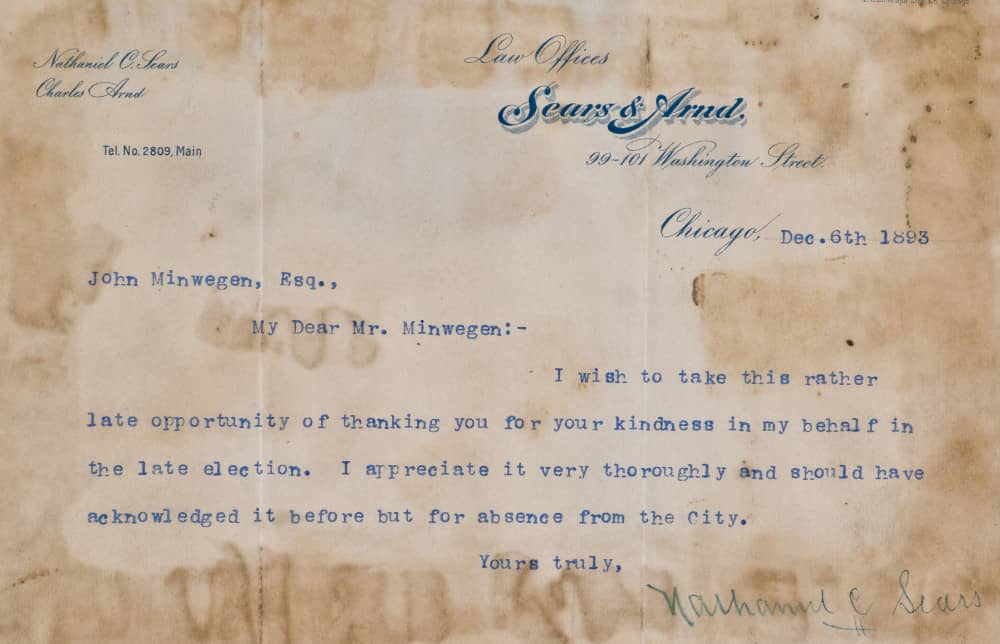 Nathaniel C. Sears
Charles Arnd
Tel. No. 2809, Main
Law Offices
Sears & Arnd.
99-101 Washington Street.
Chicago, Dec. 6th 1893
John Minwegen, Esq.,
My Dear Mr. Minwegen:-
I wish to take this rather
late opportunity of thanking you for your kindness in my behalf in
the late election. I appreciate it very thoroughly and should have
acknowledged it before but for absence from the City.
Yours truly,
Nathaniel C Sears